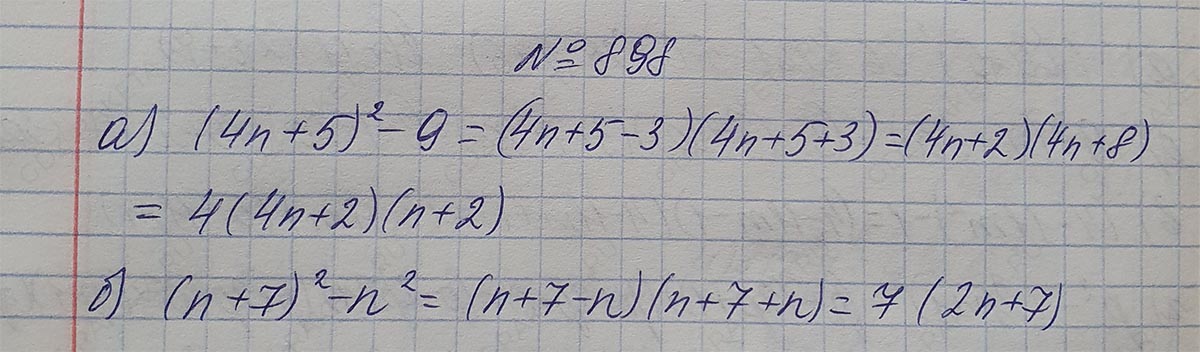 № 898
а) (4n+5)² - 9 = (4n+5-3)(4n+5+3) = (4n+2)(4n+8)
= 4(4n+2)(n+2)
б) (n+7)² - n² = (n+7-n)(n+7+n) = 7(2n+7)